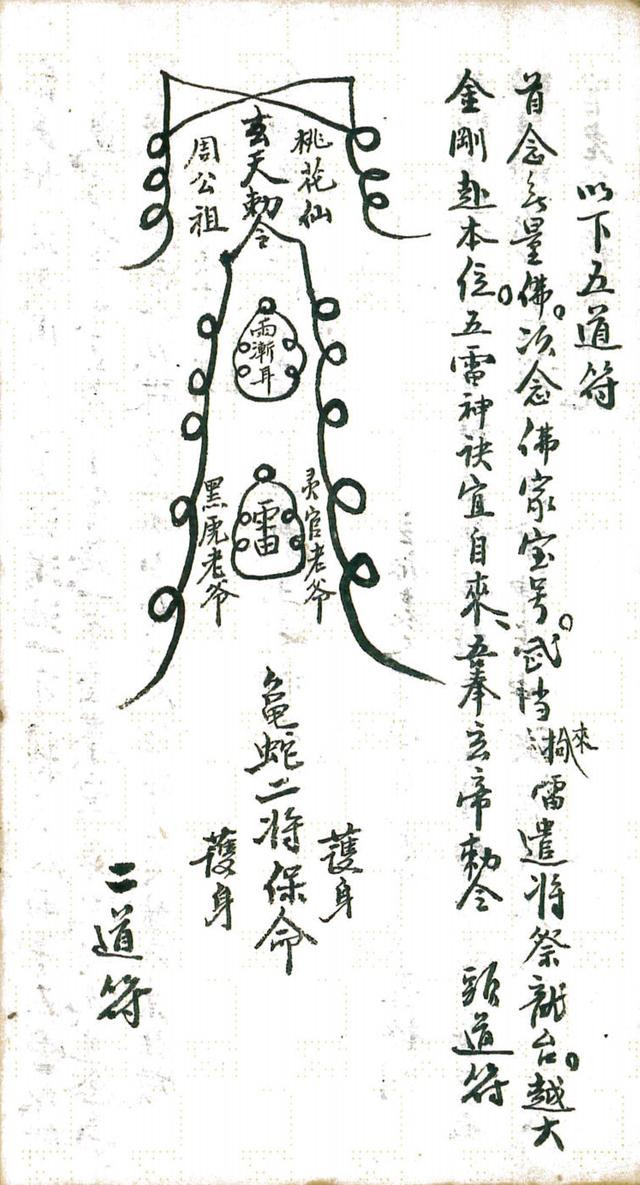 以下五道符
首念无量佛。次念佛家宝号。武当來拘雷遣将祭龍台。越大
金剛赴本位。五雷神诀宜自來、吾奉玄帝勅令 頭道符
桃花仙
玄天勅令
周公祖
雨漸耳
灵官老爷
雷
黑虎老爷
護身
龜蛇二将保命
護身
二道符